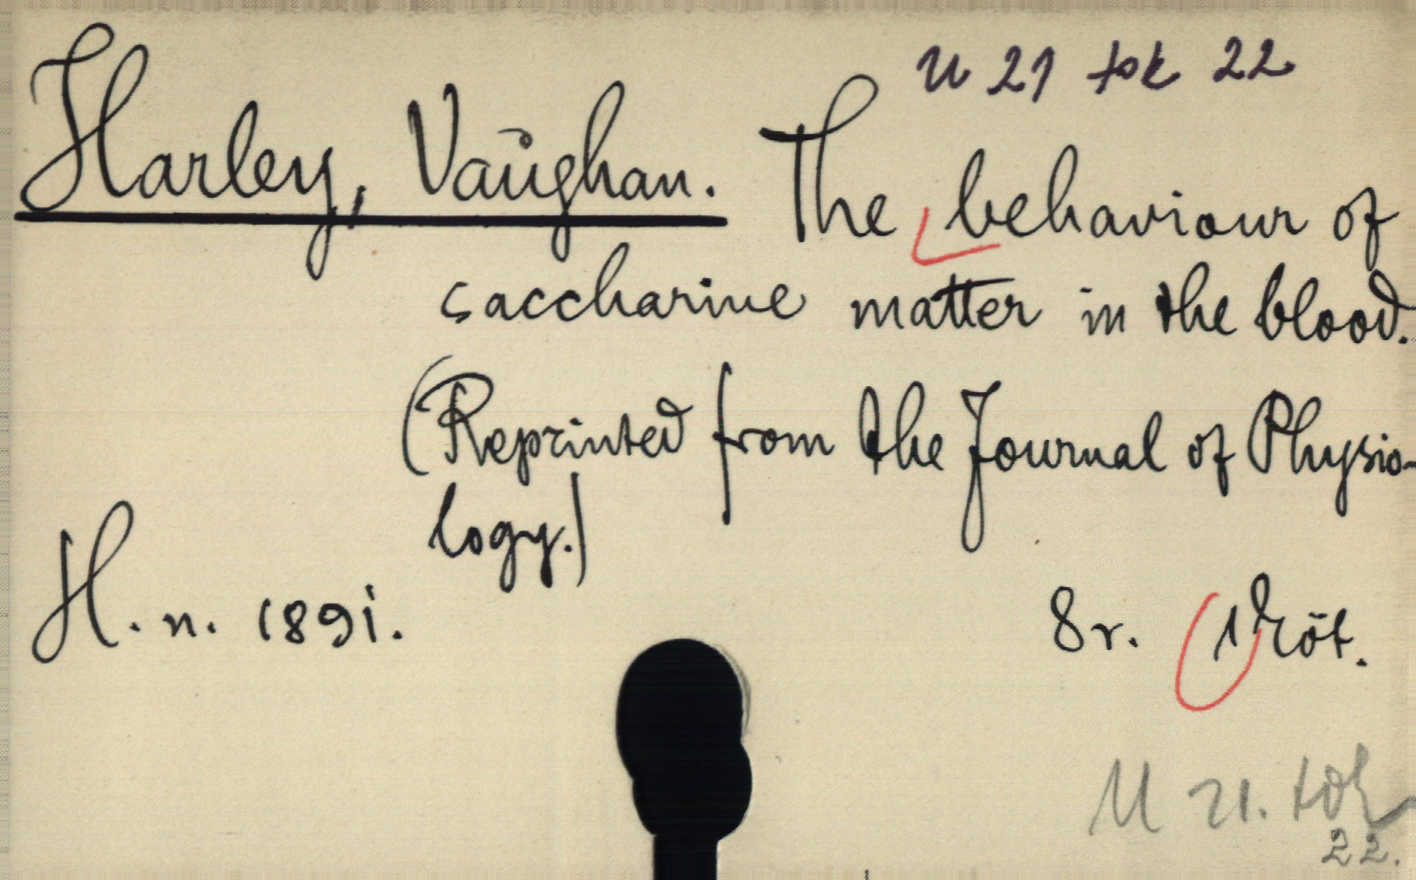 U 21 tok 22
Harley, Vaughan. The behaviour of
saccharine matter in the blood.
(Reprinted from the Journal of Physio-
logy.)
H. n. 1891.
8r. 1 köt.
U 21. tok
22.